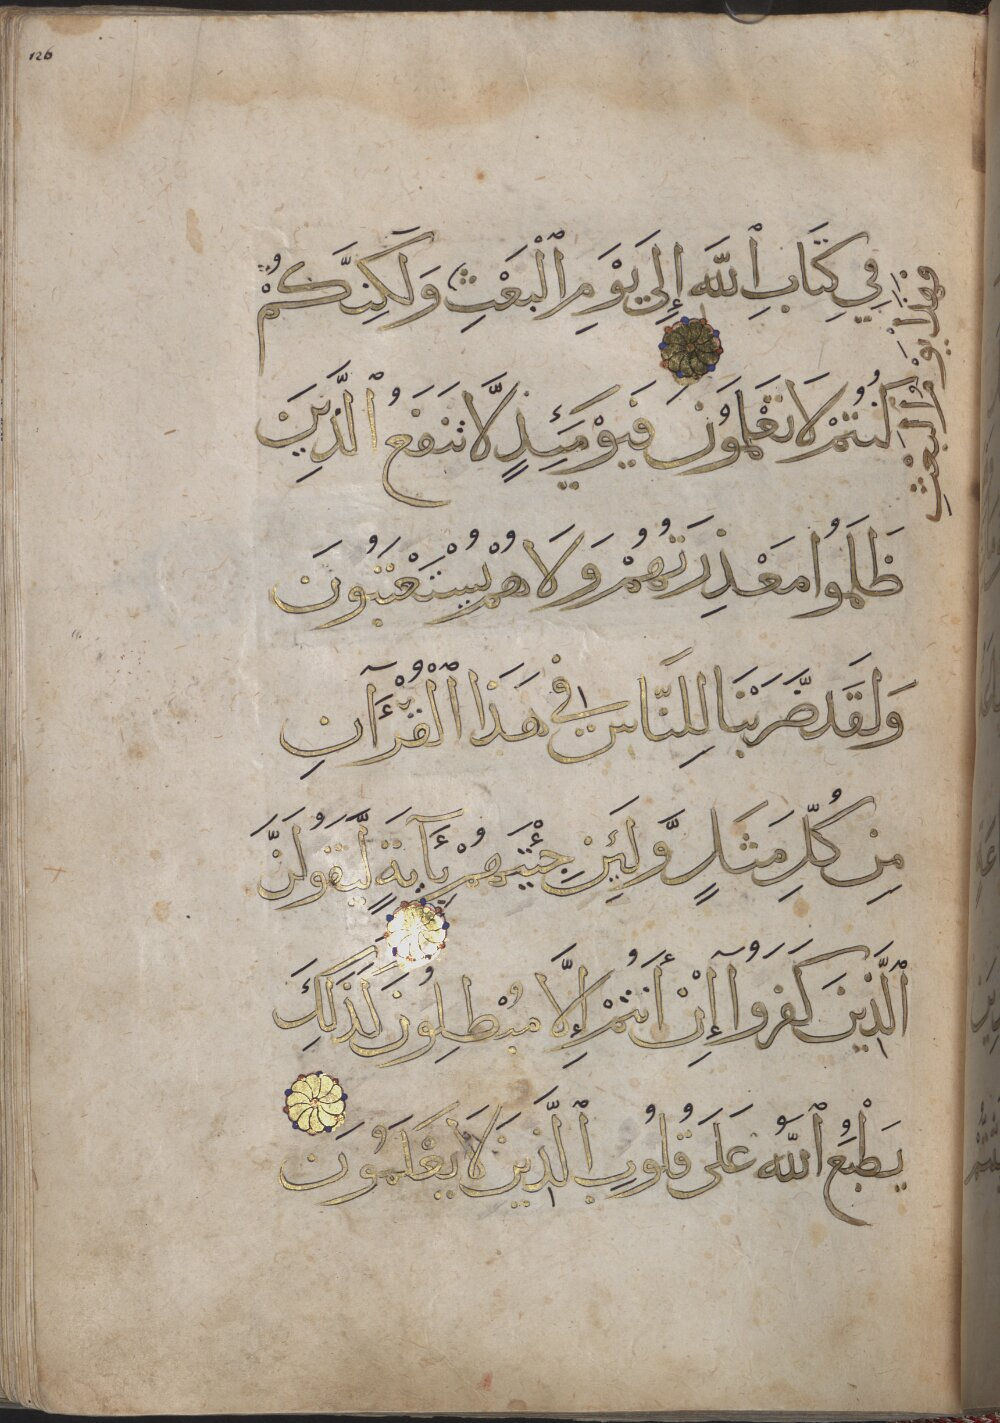 126
فِي كِتَابِ ٱللَّهِ إِلَىٰ يَوْمِ ٱلْبَعْثِ وَلَٰكِنَّكُمْ
فَهَٰذَا يَوْمُ ٱلْبَعْثِ
كُنتُمْ لَا تَعْلَمُونَ فَيَوْمَئِذٍ لَّا تَنفَعُ ٱلَّذِينَ
ظَلَمُوا مَعْذِرَتُهُمْ وَلَا هُمْ يُسْتَعْتَبُونَ
وَلَقَدْ ضَرَبْنَا لِلنَّاسِ فِي هَٰذَا ٱلْقُرْآنِ
مِن كُلِّ مَثَلٍ وَلَئِن جِئْتَهُمْ بِآيَةٍ لَّيَقُولَنَّ
ٱلَّذِينَ كَفَرُوا إِنْ أَنتُمْ إِلَّا مُبْطِلُونَ كَذَٰلِكَ
يَطْبَعُ ٱللَّهُ عَلَىٰ قُلُوبِ ٱلَّذِينَ لَا يَعْلَمُونَ